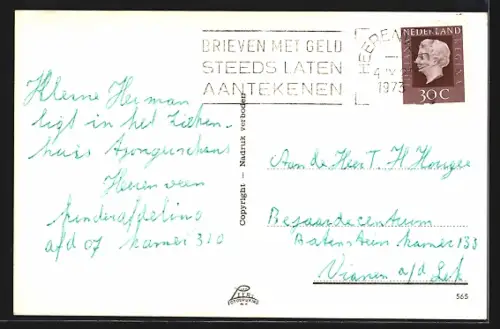 BRIEVEN MET GELD
STEEDS LATEN
AANTEKENEN
HEEREN
4
1973
NEDERLAND
JULIANA REGINA
30 C
Kleine Herman
ligt in het Zieken-
huis Tjongerschans
Heerenveen
kinderafdeling
afd 07 kamer 310
Copyright - Nadruk verboden
Aan de Heer T H
Bejaardecentrum
Batenstein kamer 133
Vianen a/d Lek
565